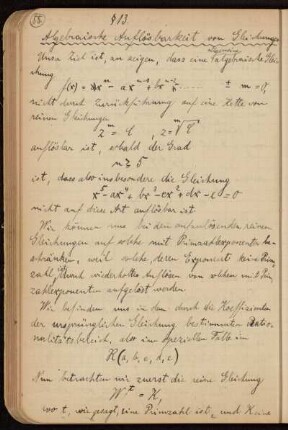 58.
§ 13
Algebraische Auflösbarkeit von Gleichungen
Unser Ziel ist, zu zeigen, dass eine algebraische Glei-
chung
f(x) = x^n - ax^{n-1} + bx^{n-2} ... ± m = 0
nicht durch Zurückführung auf eine Kette von
reinen Gleichungen
z^m = C , z = \sqrt[m]{C}
auflösbar ist, sobald der Grad
n ≥ 5
ist, dass also insbesondere die Gleichung
x^5 - ax^4 + bx^3 - cx^2 + dx - e = 0
nicht auf diese Art auflösbar ist.
Wir können uns bei den aufzulösenden reinen
Gleichungen auf solche mit Primzahlexponenten be-
schränken, weil solche, deren Exponent keine Prim-
zahl ist, durch wiederholtes Auflösen von solchen mit Prim-
zahlexponenten aufgelöst werden.
Wir befinden uns in dem durch die Koeffizienten
der ursprünglichen Gleichung bestimmten Ratio-
nalitätsbereich, also im speziellen Falle in
R(a, b, c, d, e)
Nun betrachten wir zuerst die reine Gleichung
W^t = K,
wo t, wie gesagt, eine Primzahl ist, und K eine